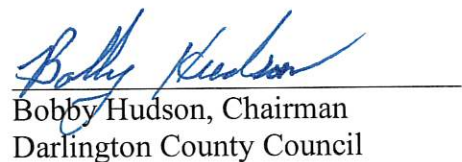 Bobby Hudson
Bobby Hudson, Chairman
Darlington County Council